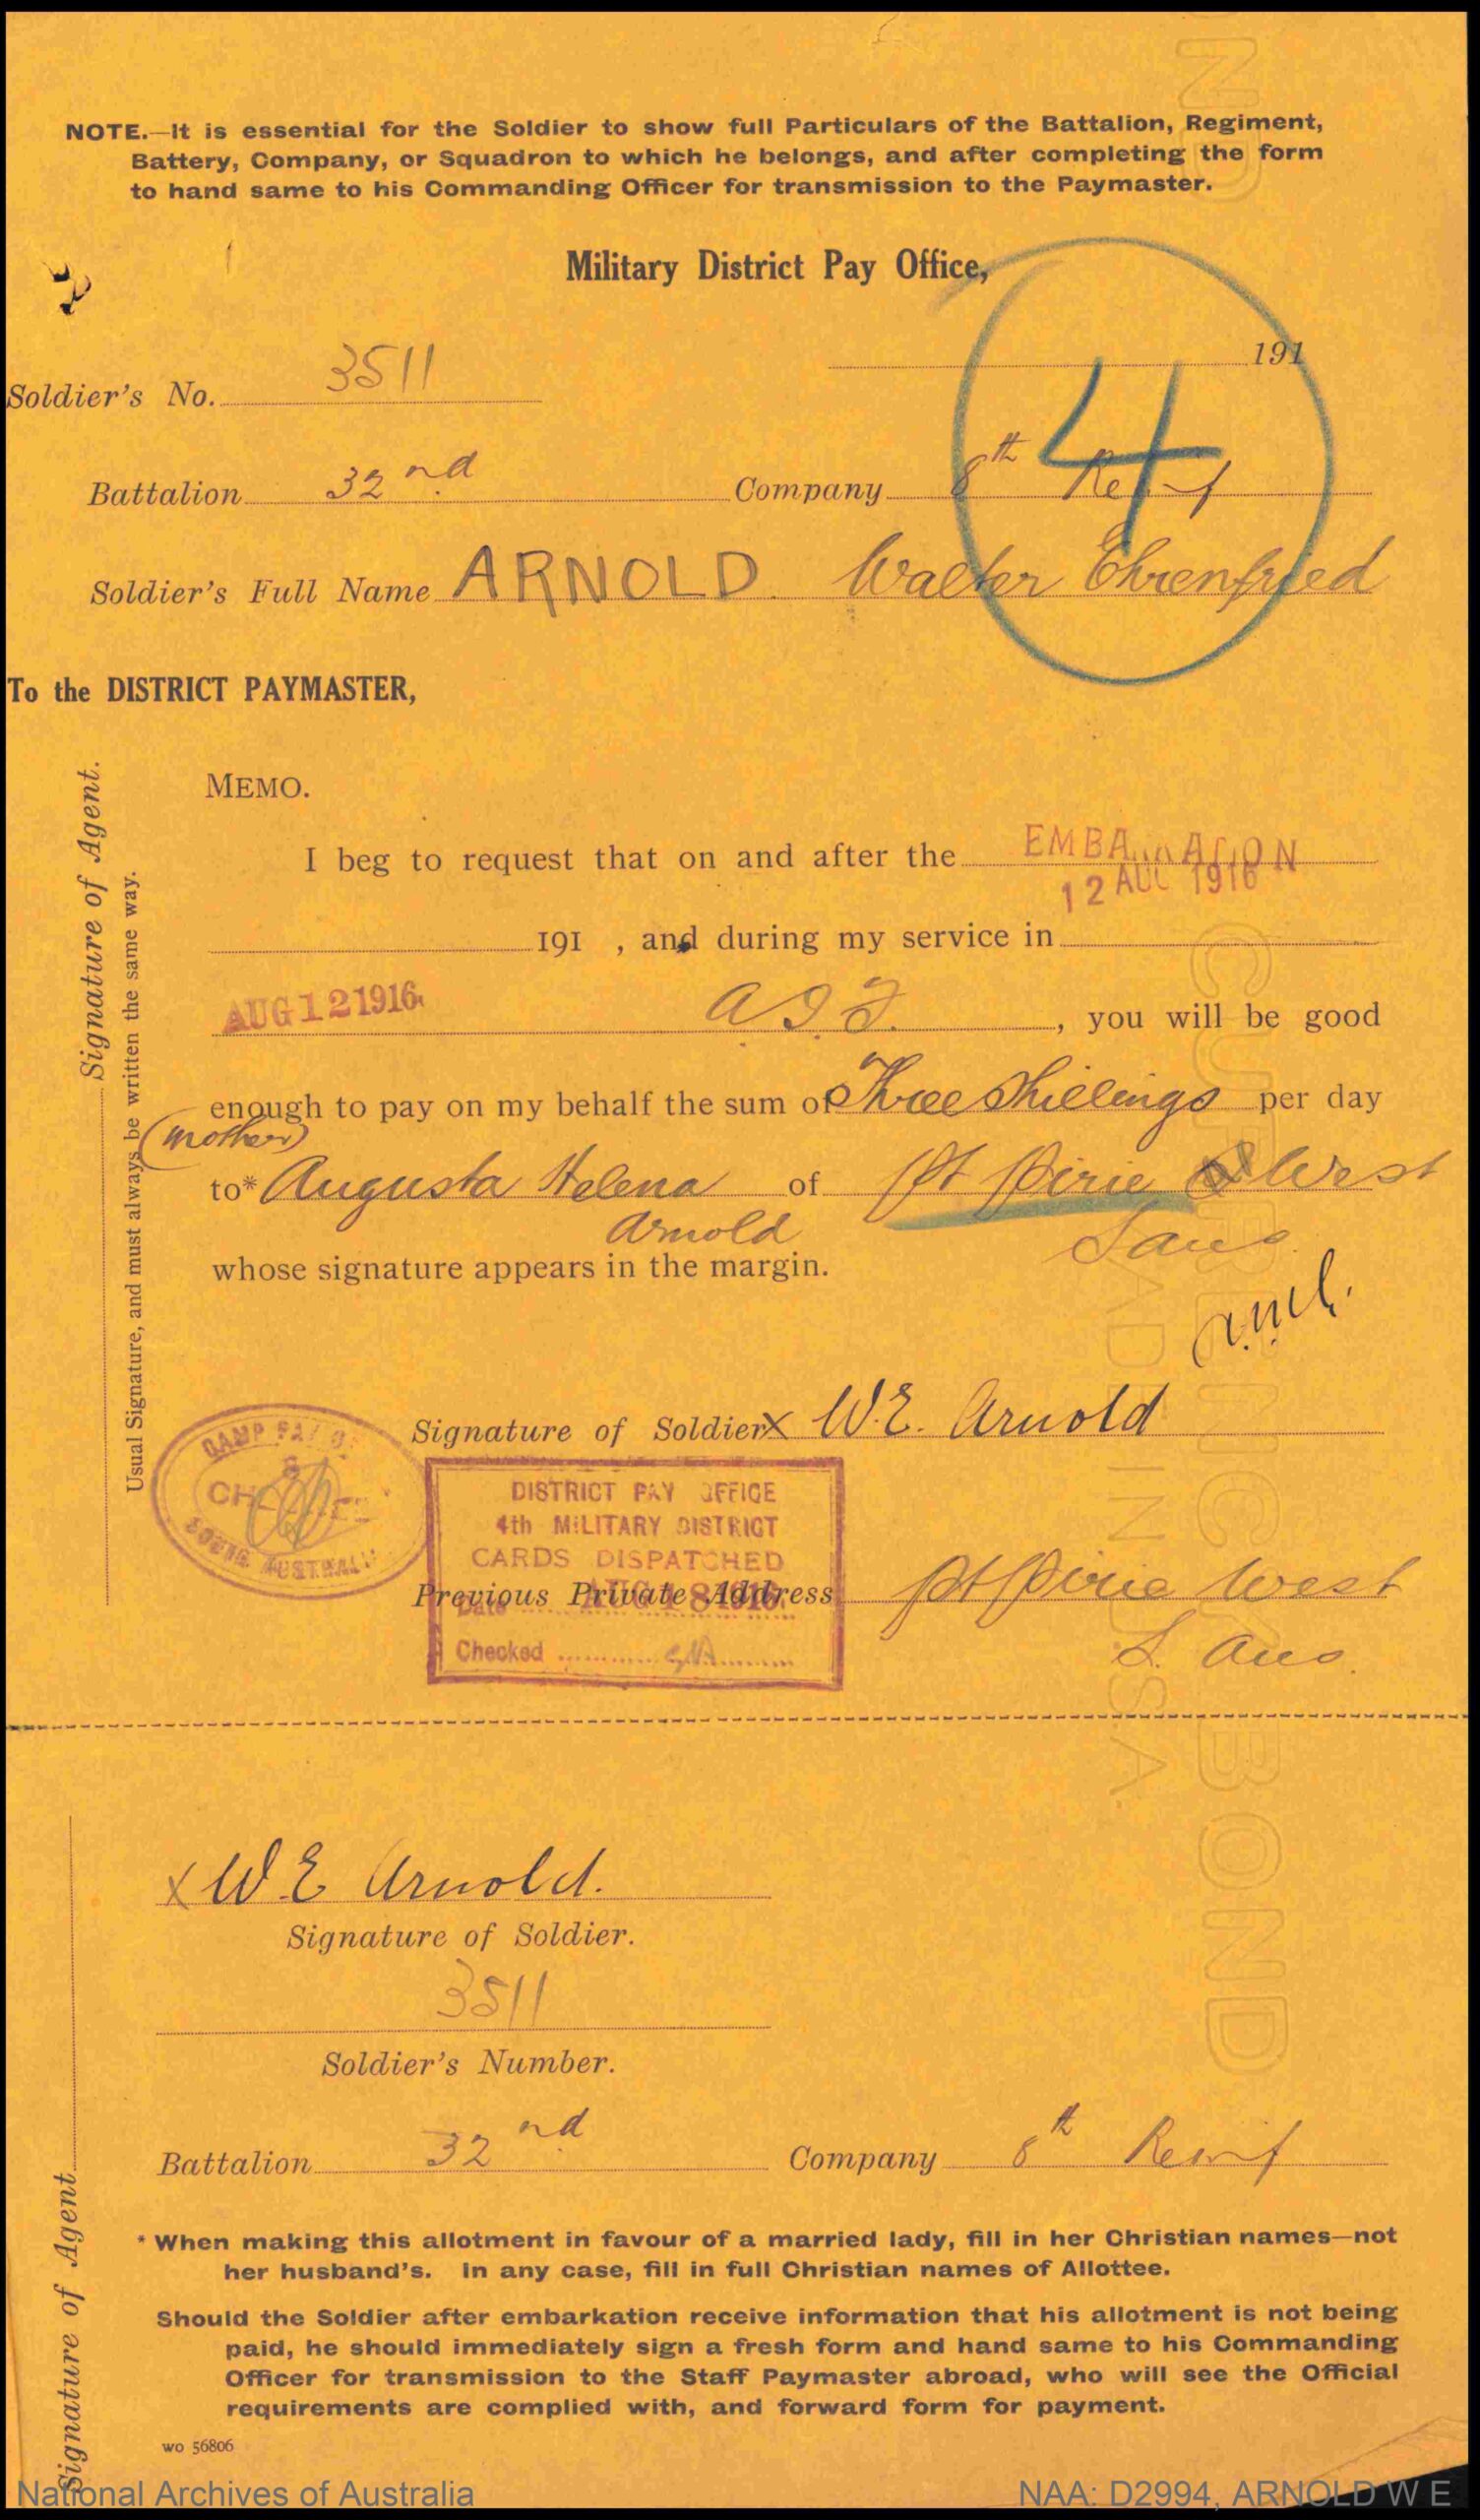 NOTE.—It is essential for the Soldier to show full Particulars of the Battalion, Regiment,
Battery, Company, or Squadron to which he belongs, and after completing the form
to hand same to his Commanding Officer for transmission to the Paymaster.
Military District Pay Office,
191
4
Soldier's No. 3511
Battalion 32nd Company 8th Reinf
Soldier's Full Name ARNOLD. Walter Ehrenfried
To the DISTRICT PAYMASTER,
MEMO.
I beg to request that on and after the
12 AUG 1916
191 , and during my service in
AUG 12 1916 A.I.F. , you will be good
enough to pay on my behalf the sum of Three Shillings per day
(Mother)
to* Augusta Helena of Pt Pirie West
Arnold S Aus.
whose signature appears in the margin.
Signature of Agent.
Usual Signature, and must always be written the same way.
Signature of Soldier X W.E. Arnold
CAMP PAY
SOUTH AUSTRALIA
DISTRICT PAY OFFICE
4th MILITARY DISTRICT
CARDS DISPATCHED
Date
Checked
Previous Private Address Pt Pirie West
S. Aus.
X W E Arnold.
Signature of Soldier.
3511
Soldier's Number.
Battalion 32nd Company 8th Reinf
Signature of Agent
* When making this allotment in favour of a married lady, fill in her Christian names—not
her husband's. In any case, fill in full Christian names of Allottee.
Should the Soldier after embarkation receive information that his allotment is not being
paid, he should immediately sign a fresh form and hand same to his Commanding
Officer for transmission to the Staff Paymaster abroad, who will see the Official
requirements are complied with, and forward form for payment.
WO 56806
BOND
MADE IN U.S.A.
National Archives of Australia
NAA: D2994, ARNOLD W E